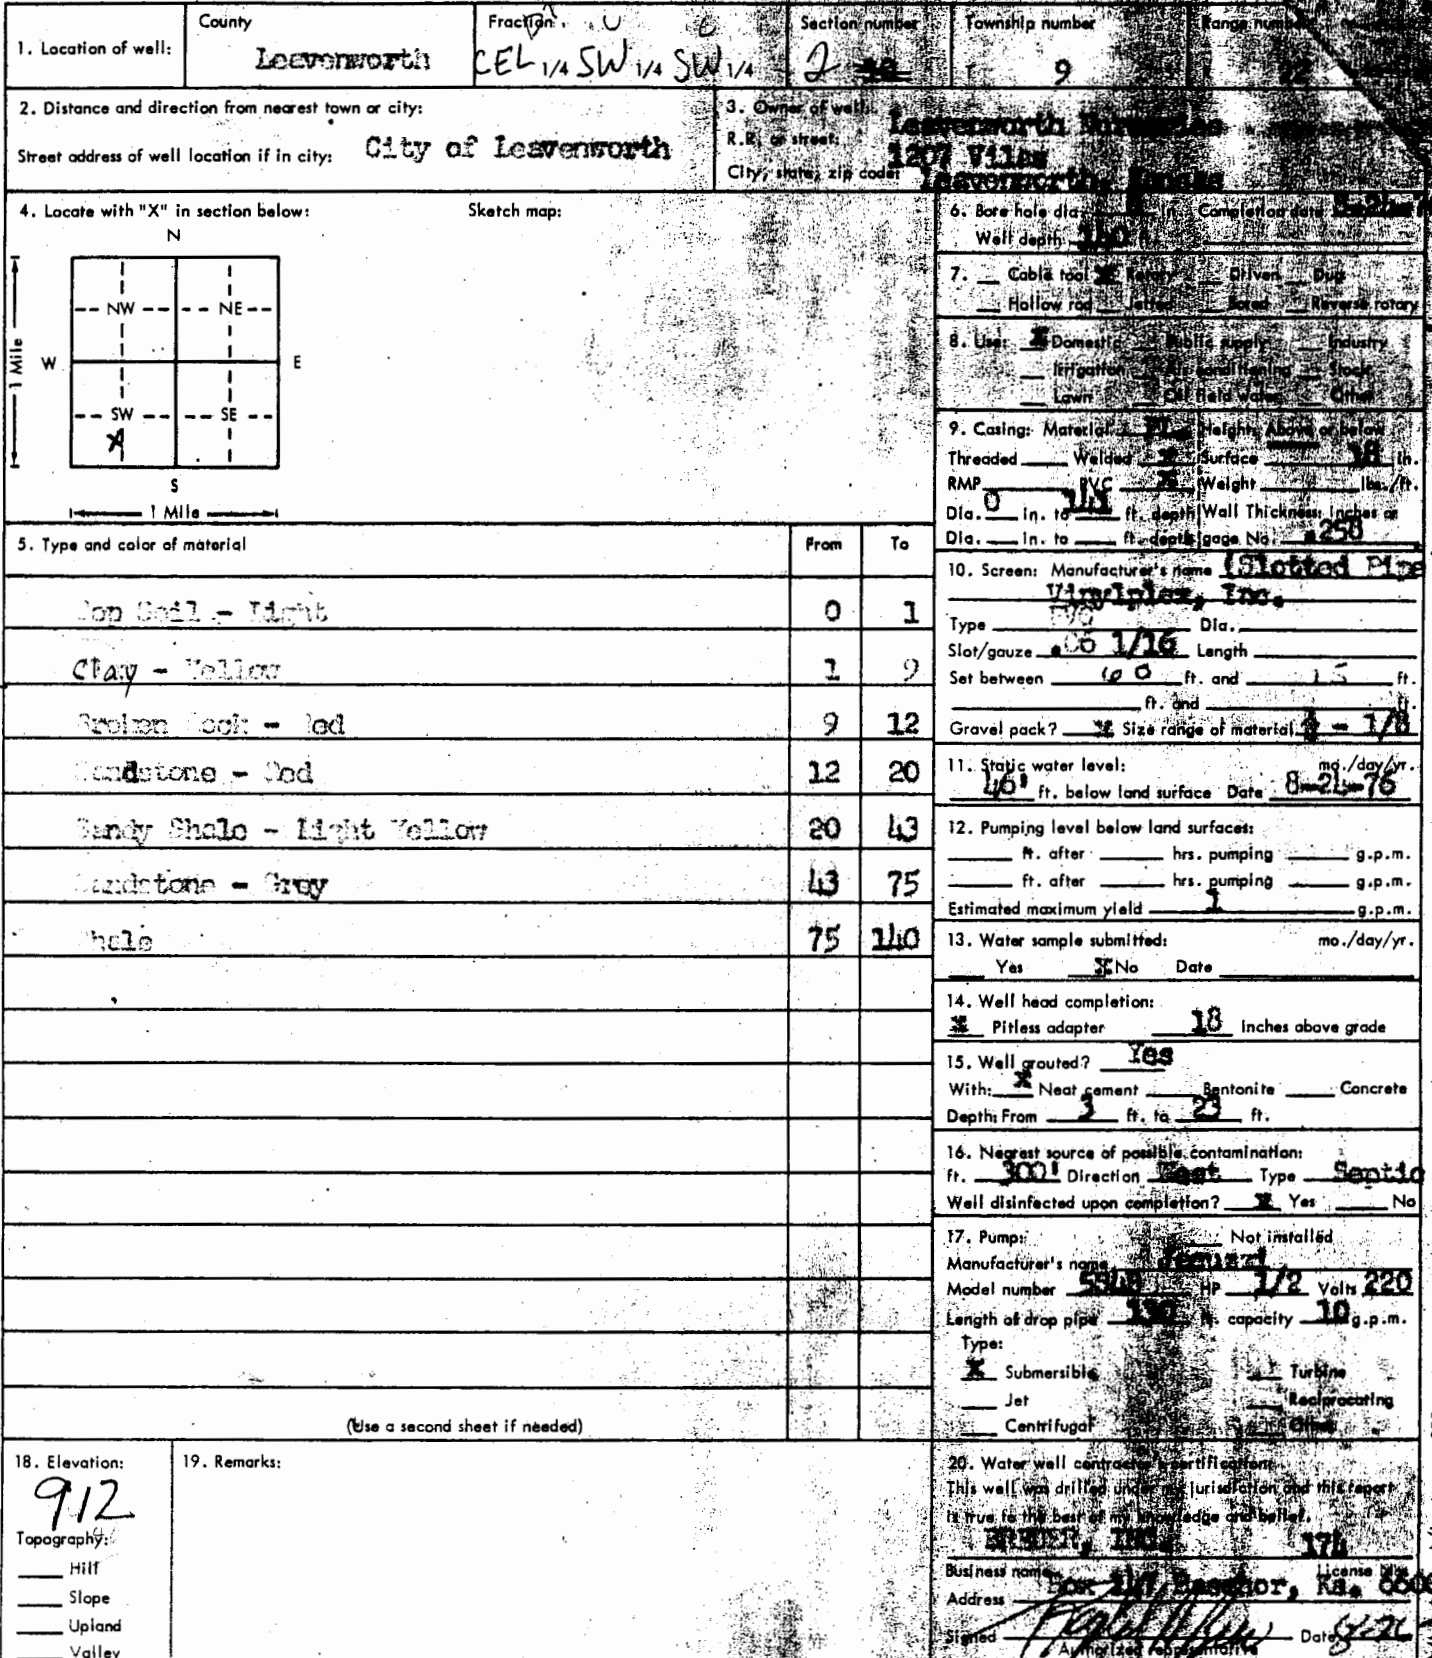 1. Location of well:
County
Leavenworth
Fraction
CEL 1/4 SW 1/4 SW 1/4
Section number
2
Township number
9
Range number
22
2. Distance and direction from nearest town or city:
Street address of well location if in city: City of Leavenworth
3. Owner of well: Leavenworth
R.R. or street: 1207 Vilas
City, state, zip code: Leavenworth, Kansas
4. Locate with "X" in section below:
Sketch map:
N
NW NE
W E
SW SE
X
S
1 Mile
1 Mile
5. Type and color of material From To
Top Soil - Light 0 1
Clay - Yellow 1 9
Broken Rock - Red 9 12
Sandstone - Red 12 20
Sandy Shale - Light Yellow 20 43
Sandstone - Grey 43 75
Shale 75 140
(Use a second sheet if needed)
6. Bore hole dia. in. Completion date
Well depth 140
7. Cable tool X Rotary Driven Dug
Hollow rod Jetted Bored Reverse rotary
8. Use: X Domestic Public supply Industry
Irrigation Air conditioning Stock
Lawn Oil field water Other
9. Casing: Material Height: Above or below
Threaded Welded Surface 18 in.
RMP PVC X Weight lbs./ft.
Dia. 0 in. to 141 ft. depth Wall Thickness: inches or
Dia. in. to ft. depth gage No. .250
10. Screen: Manufacturer's name (Slotted Pipe
Vinylplex, Inc.
Type PVC Dia.
Slot/gauze .06 1/16 Length
Set between 60 ft. and ft.
ft. and ft.
Gravel pack? X Size range of material - 1/8
11. Static water level: mo./day/yr.
46' ft. below land surface Date 8-24-76
12. Pumping level below land surfaces:
ft. after hrs. pumping g.p.m.
ft. after hrs. pumping g.p.m.
Estimated maximum yield 1 g.p.m.
13. Water sample submitted: mo./day/yr.
Yes X No Date
14. Well head completion:
X Pitless adapter 18 Inches above grade
15. Well grouted? Yes
With: X Neat cement Bentonite Concrete
Depth: From 3 ft. to 23 ft.
16. Nearest source of possible contamination:
ft. 300' Direction West Type Septic
Well disinfected upon completion? X Yes No
17. Pump: Not installed
Manufacturer's name Jacuzzi
Model number HP 1/2 Volts 220
Length of drop pipe 130 ft. capacity 10 g.p.m.
Type:
X Submersible Turbine
Jet Reciprocating
Centrifugal Other
18. Elevation:
912
Topography:
Hill
Slope
Upland
Valley
19. Remarks:
20. Water well contractor's certification:
This well was drilled under my jurisdiction and this report
is true to the best of my knowledge and belief.
INC. 174
Business name License No.
Address Box Basehor, Ks.
Signed Date
Authorized representative